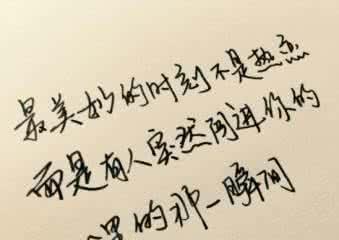 最美妙的时刻不是热恋
而是有人突然闯进你的
里的那一瞬间